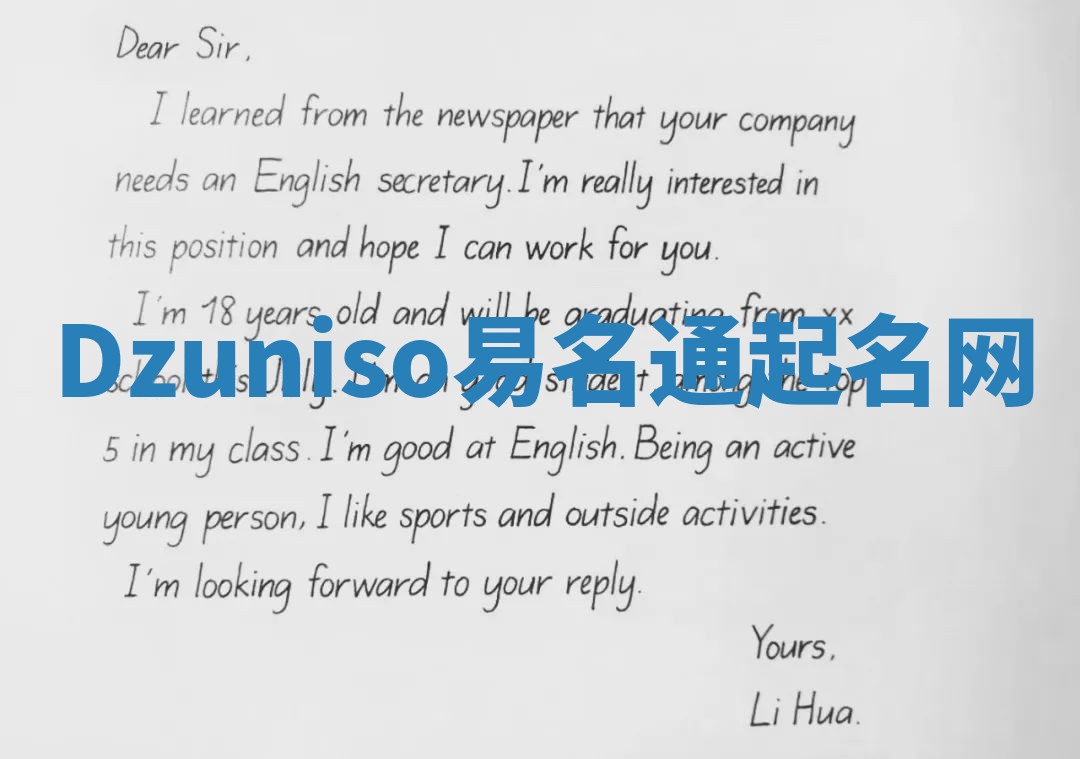 Dear Sir,
I learned from the newspaper that your company
needs an English secretary. I'm really interested in
this position and hope I can work for you.
I'm 18 years old and will be graduating from xx
Dzuniso易名通起名网
school this July. I'm a good student, among the top
5 in my class. I'm good at English. Being an active
young person, I like sports and outside activities.
I'm looking forward to your reply.
Yours,
Li Hua.